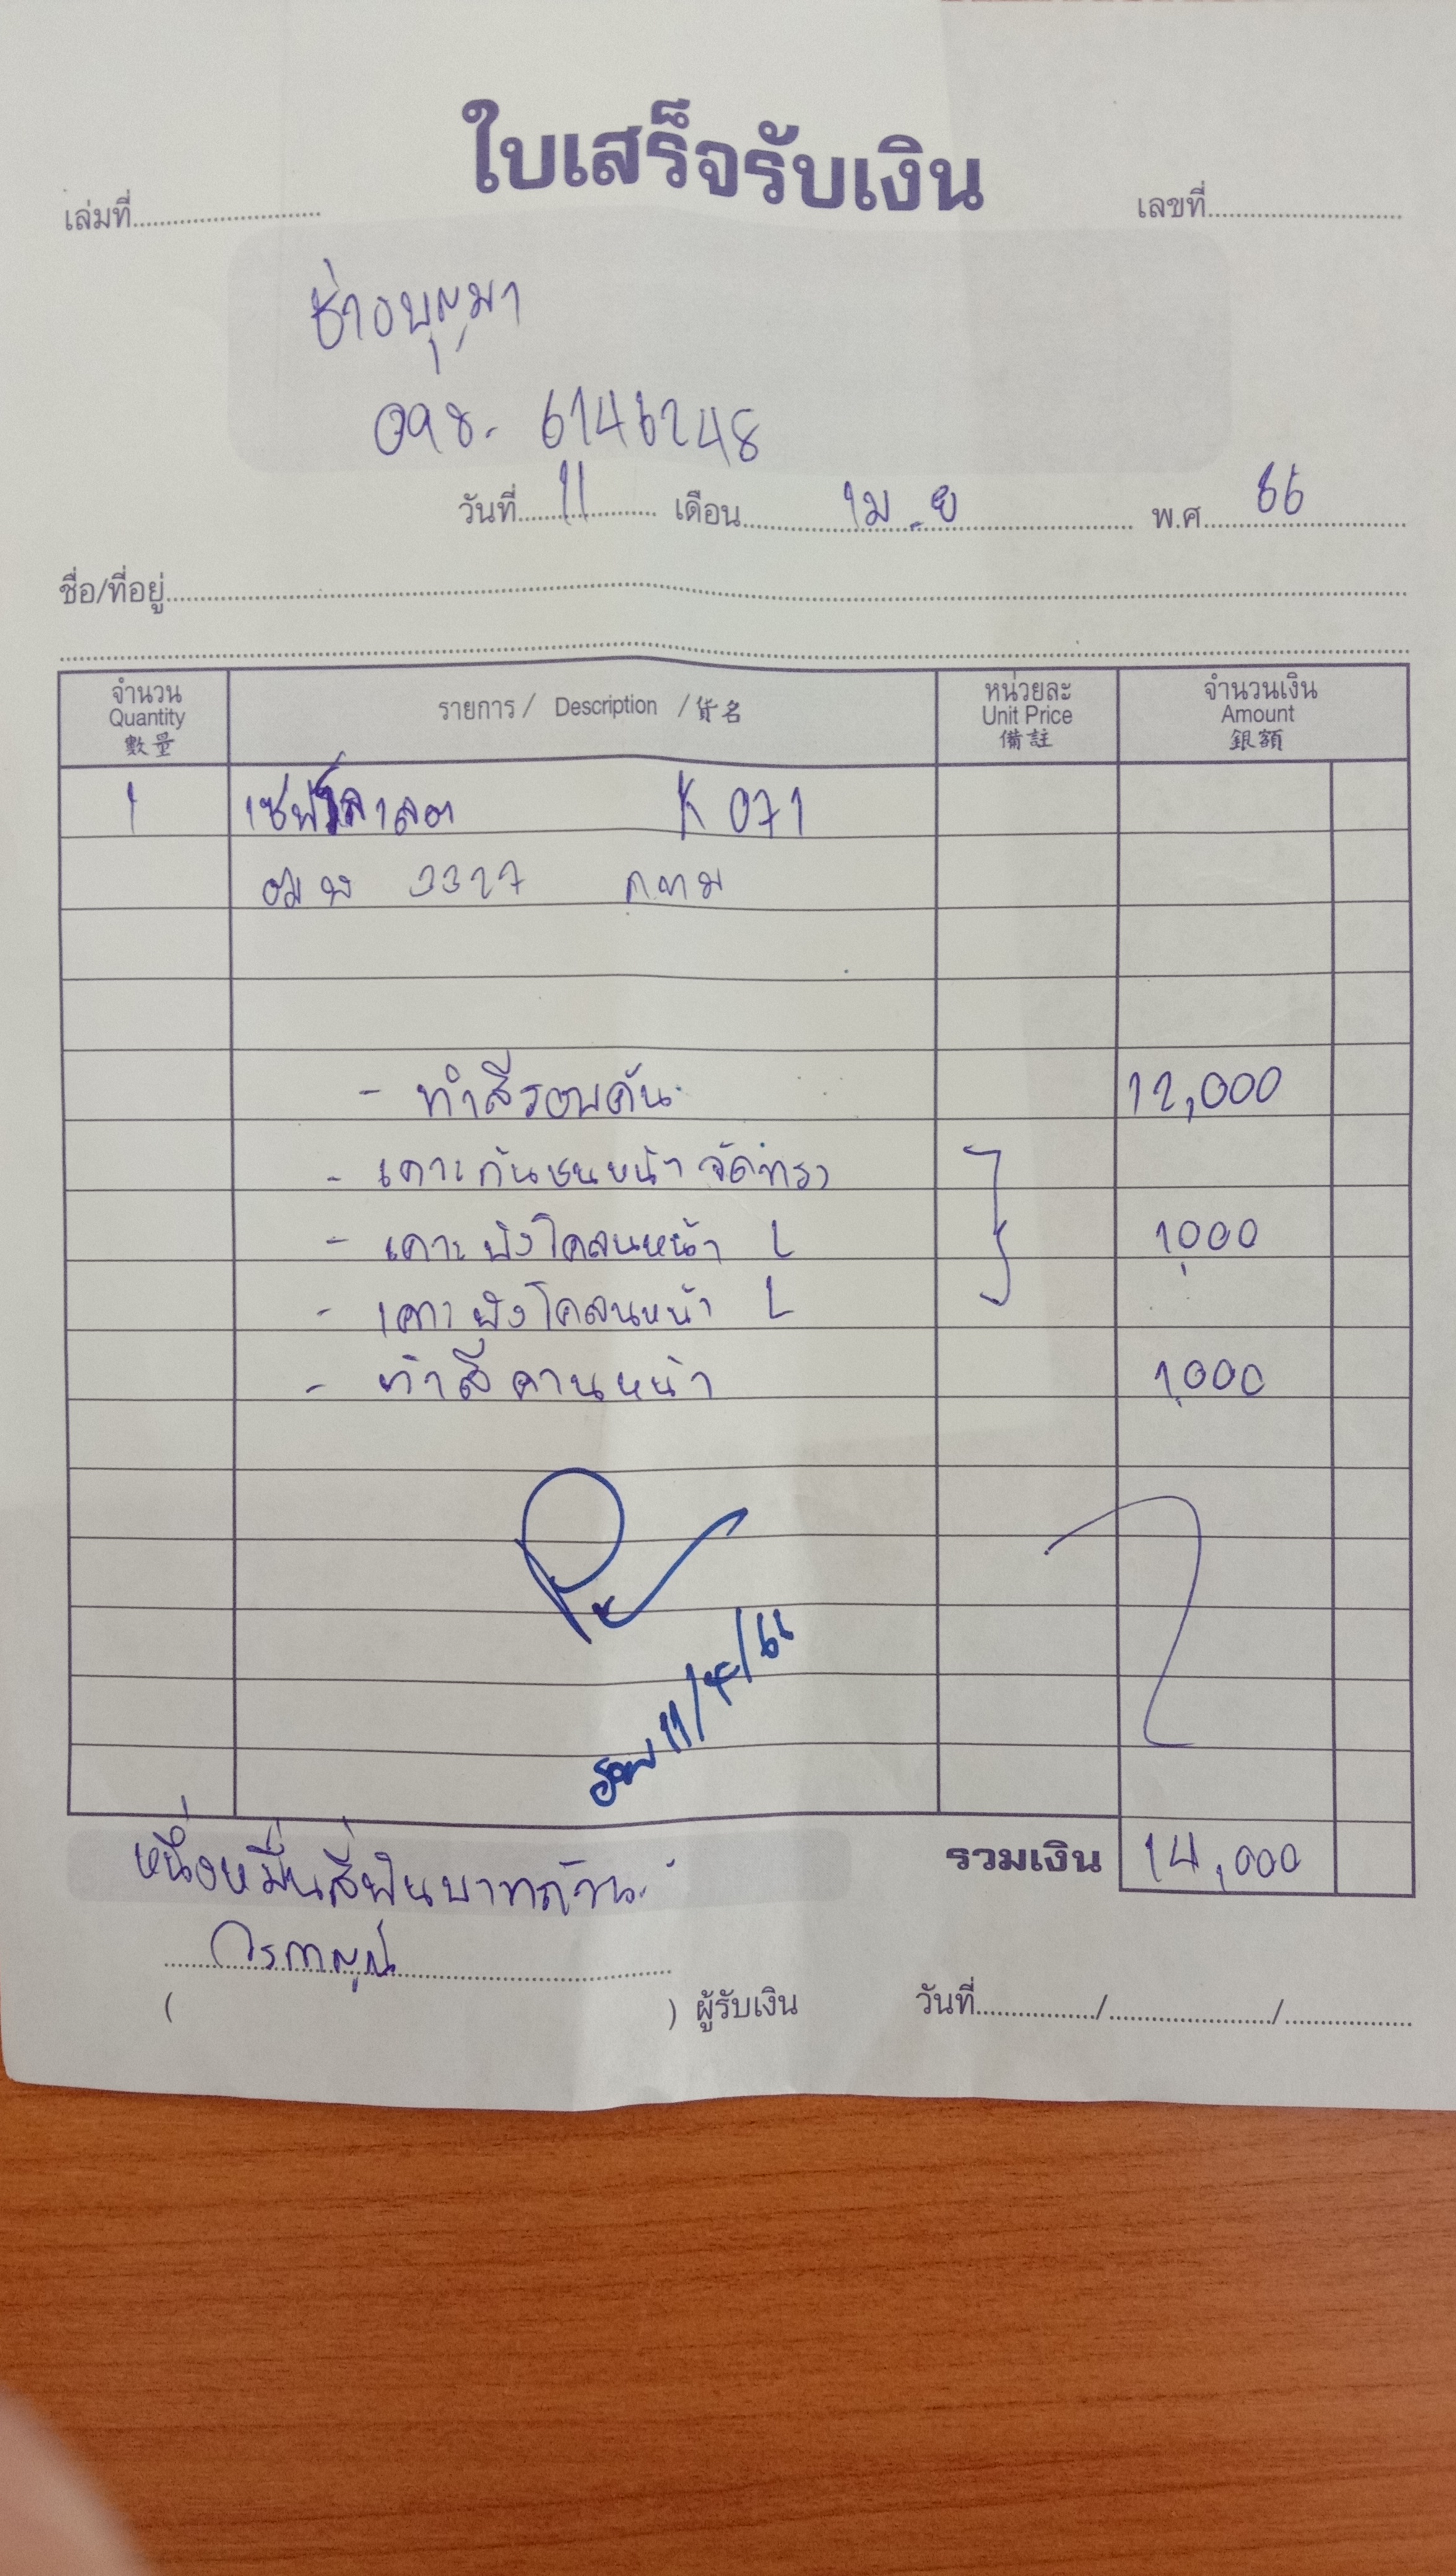 ใบเสร็จรับเงิน
เล่มที่ เลขที่
ช่างบุญมา
098- 6146248
วันที่ 11 เดือน เม.ย พ.ศ. 66
ชื่อ/ที่อยู่
จำนวน รายการ / Description / 貨名 หน่วยละ จำนวนเงิน
Quantity Unit Price Amount
數量 備註 銀額
1 K 071
3327 กทม
- ทำสีรอบคัน 12,000
- เคาะกันชนหน้า จัดทรง
- เคาะบังโคลนหน้า L 1,000
- เคาะบังโคลนหน้า L
- ทำสีคานหน้า 1,000
11/4/66
หนึ่งหมื่นสี่พันบาทถ้วน รวมเงิน 14,000
( ) ผู้รับเงิน วันที่ / /